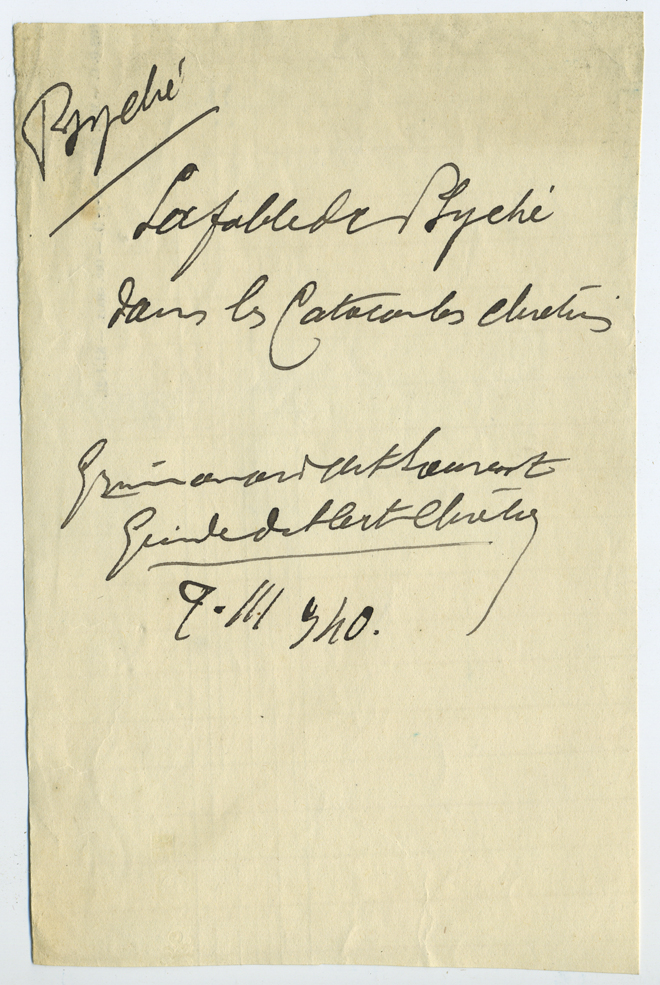 Psyché
La fable de Psyché
dans les Catacombes chrétiens
Grimouard de St Laurent
Guide de l'Art Chrétien
T. III 340.